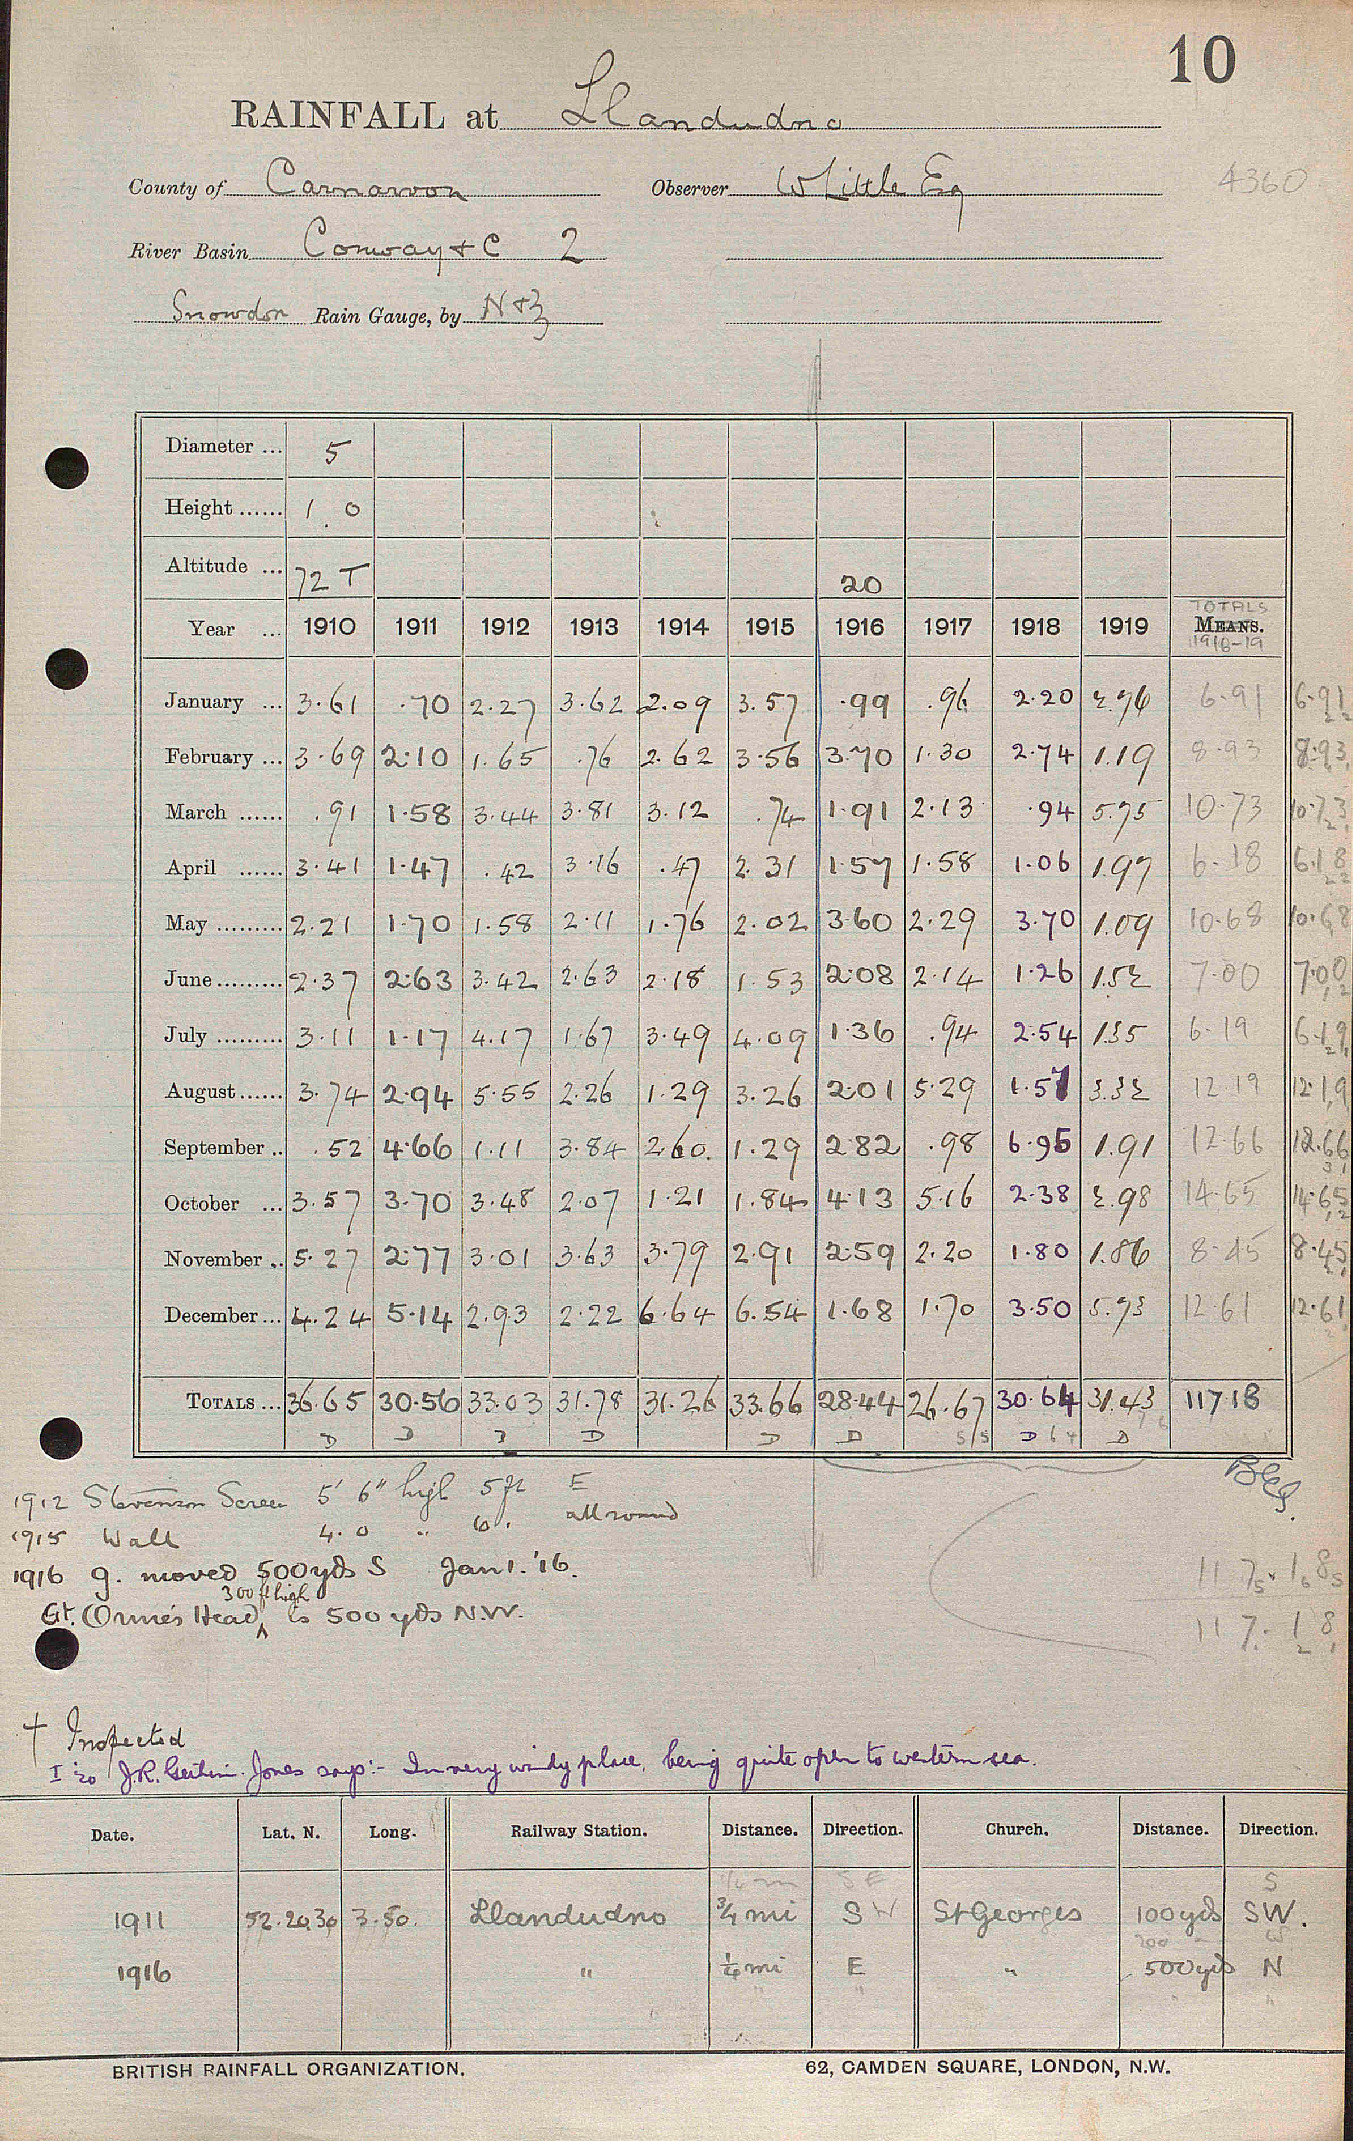 10
RAINFALL at Llandudno
County of Carnarvon Observer W Little Esq 4360
River Basin Conway & C 2
Snowdon Rain Gauge, by N & Z
Diameter ... 5
Height ...... 1 . 0
Altitude ... 72 T 20
TOTALS
Year ... 1910 1911 1912 1913 1914 1915 1916 1917 1918 1919 MEANS.
1916-19
January ... 3.61 .70 2.27 3.62 2.09 3.57 .99 .96 2.20 2.76 6.91 6.91
February ... 3.69 2.10 1.65 .76 2.62 3.56 3.70 1.30 2.74 1.19 8.93 8.93
March ...... .91 1.58 3.44 3.81 3.12 .74 1.91 2.13 .94 5.75 10.73 10.73
April ...... 3.41 1.47 .42 3.16 .47 2.31 1.57 1.58 1.06 1.97 6.18 6.18
May ......... 2.21 1.70 1.58 2.11 1.76 2.02 3.60 2.29 3.70 1.09 10.68 10.68
June ......... 2.37 2.63 3.42 2.63 2.18 1.53 2.08 2.14 1.26 1.52 7.00 7.00
July ......... 3.11 1.17 4.17 1.67 3.49 4.09 1.36 .94 2.54 1.35 6.19 6.19
August ...... 3.74 2.94 5.55 2.26 1.29 3.26 2.01 5.29 1.57 3.32 12.19 12.19
September .. .52 4.66 1.11 3.84 2.60 1.29 2.82 .98 6.95 1.91 12.66 12.66
October ... 3.57 3.70 3.48 2.07 1.21 1.84 4.13 5.16 2.38 2.98 14.65 14.65
November .. 5.27 2.77 3.01 3.63 3.79 2.91 2.59 2.20 1.80 1.86 8.45 8.45
December ... 4.24 5.14 2.93 2.22 6.64 6.54 1.68 1.70 3.50 5.73 12.61 12.61
TOTALS ... 36.65 30.56 33.03 31.78 31.26 33.66 28.44 26.67 30.64 31.43 117.18
D D D D D D S/S D 64 D
1912 Stevenson Screen 5' 6" high 5 ft E
1915 Wall 4.0 " 6 . all round
1916 g. moved 500 yds S Jan 1. '16.
Gt. Orme's Head 300 ft high is 500 yds N.W.
117.18
117.18
† Inspected
I '20 J.R. Jones says:- In very windy place, being quite open to western sea.
Date. Lat. N. Long. Railway Station. Distance. Direction. Church. Distance. Direction.
1/4 m SE S
1911 52.20.30 3.50. Llandudno 3/4 mi SW St Georges 100 yds SW.
200 W
1916 " 1/4 mi E " 500 yds N
BRITISH RAINFALL ORGANIZATION. 62, CAMDEN SQUARE, LONDON, N.W.